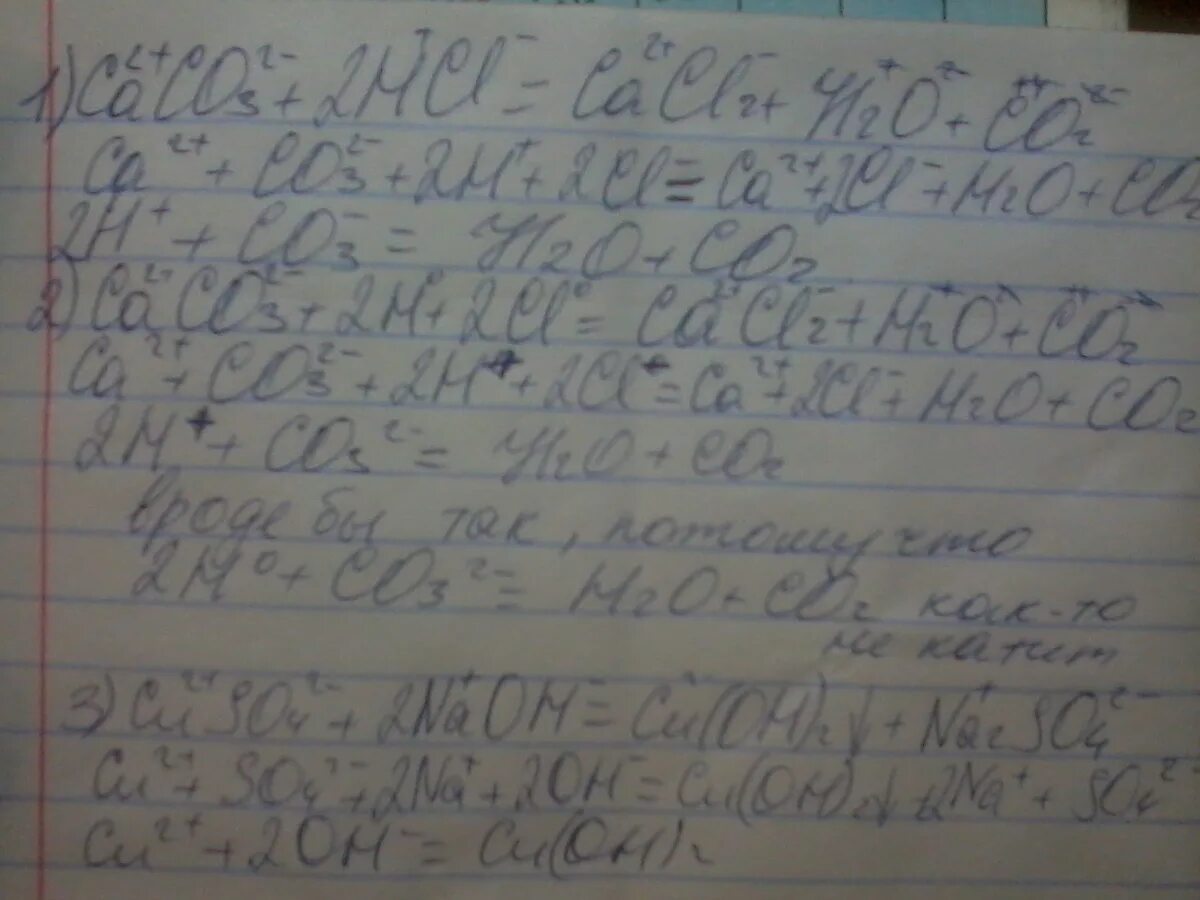 1) Ca²⁺CO₃²⁻ + 2H⁺Cl⁻ = Ca²⁺Cl⁻₂ + H₂⁺O²⁻ + C⁴⁺O₂²⁻
Ca²⁺ + CO₃²⁻ + 2H⁺ + 2Cl⁻ = Ca²⁺ + 2Cl⁻ + H₂O + CO₂
2H⁺ + CO₃⁻ = H₂O + CO₂
2) Ca²⁻CO₃²⁻ + 2H + 2Cl = CaCl₂⁻ + H₂⁺O + CO₂
Ca²⁺ + CO₃²⁻ + 2H⁺ + 2Cl⁺ = Ca²⁺ + 2Cl⁻ + H₂O + CO₂
2H⁺ + CO₃²⁻ = H₂O + CO₂
вроде бы так, потому что
2H⁰ + CO₃²⁻ = H₂O + CO₂ как-то
не катит
3) Cu²⁺SO₄²⁻ + 2Na⁺OH⁻ = Cu(OH)₂↓ + Na₂⁺SO₄²⁻
Cu²⁺ + SO₄²⁻ + 2Na⁺ + 2OH⁻ = Cu(OH)₂↓ + 2Na⁺ + SO₄²⁻
Cu²⁺ + 2OH⁻ = Cu(OH)₂